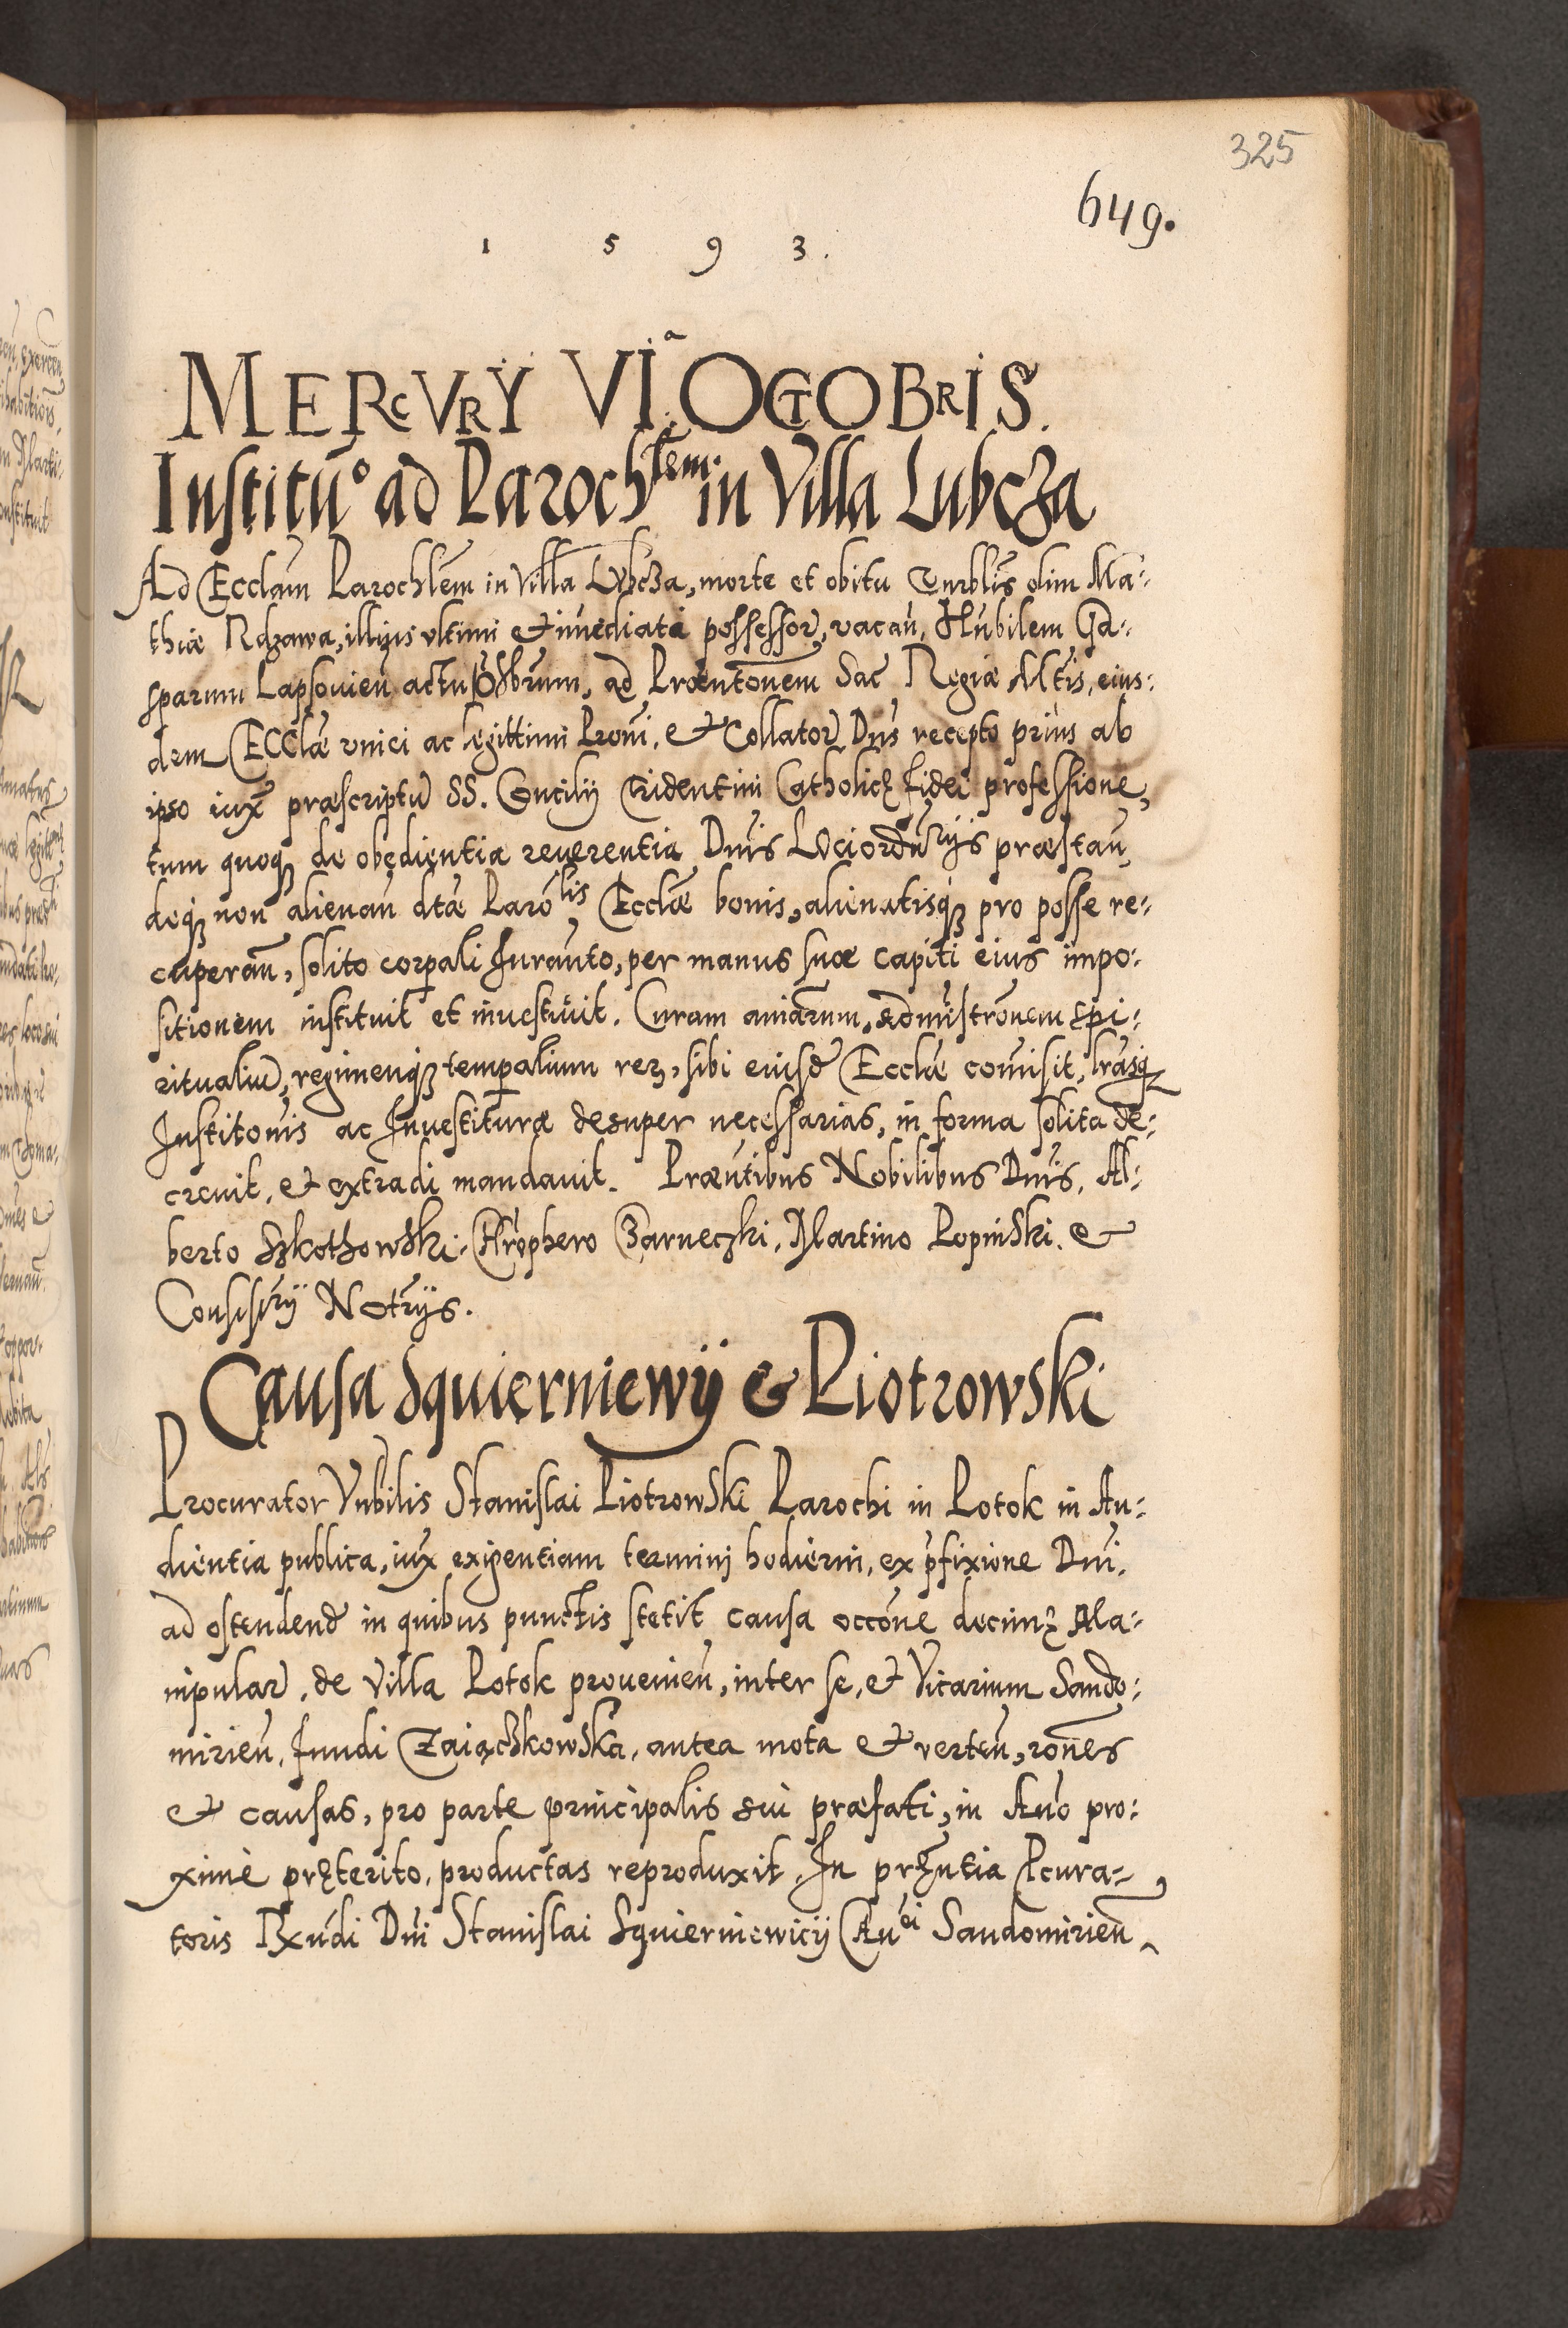 325
649.
1 5 9 3.
MERCVRY VIª OCTOBRIS.
Institũᵒ ad Parochlem in Villa Lubcza
Ad Ecclãm Parochlẽm in Villa Lubcza, morte et obitu olim Ma-
thiæ Rdzawa, illius vltimi et imẽdiata possessor, vacañ, Hubilem Ga-
sparum Lapsouieñ actu pbrum, ad Præntõnem Sac Regiæ Mtis, eius-
dem Ecclæ vnici ac legittimi Proñi, et Collator Dns recepto prius ab
ipso iux præscriptũ SS. Concilij Tridentini Catholicę fidei professione,
tum quoqȝ de obędientia reuerentia Dnis Lociordnrijs præstañ,
deqȝ non alienañ dtæ Parõlis Ecclæ bonis, alienatisqȝ pro posse re-
cuperañ, solito corpali Iuranto, per manus suæ capiti eius impo-
sitionem instituit et inuestiuit. Curam aniarum, administrõnem spi-
ritualiũ, regimenqȝ temporalium reȝ, sibi eiusd Ecclæ comisit, lrasqȝ
Institonis ac Inuestituræ desuper necessarias, in forma solita de-
creuit, et extradi mandauit. Præntibus Nobilibus Dnis, Al-
berto Szkothowski, Xrophero Czarneczki, Martino Popinski, et
Consistrij Notrijs.
Causa Squierniewij & Piotrowski
Procurator Vnbilis Stanislai Piotrowski Parochi in Potok in Au-
dientia publica, iux exigentiam termini hodierni, ex pfixione Dni,
ad ostendend in quibus punctis stetit causa occõne decimę Ma-
nipular, de villa Potok prouenieñ, inter se, et Vicarium Sando-
mirieñ, fundi Zaiączkowska, antea mota et verteñ, rõnes
et causas, pro parte principalis sui præfati, in Anõ pro-
ximè pręterito, productas reproduxit. In pręntia Pcura-
toris Rxñdi Dni Stanislai Squierniewicij Canci Sandomirieñ